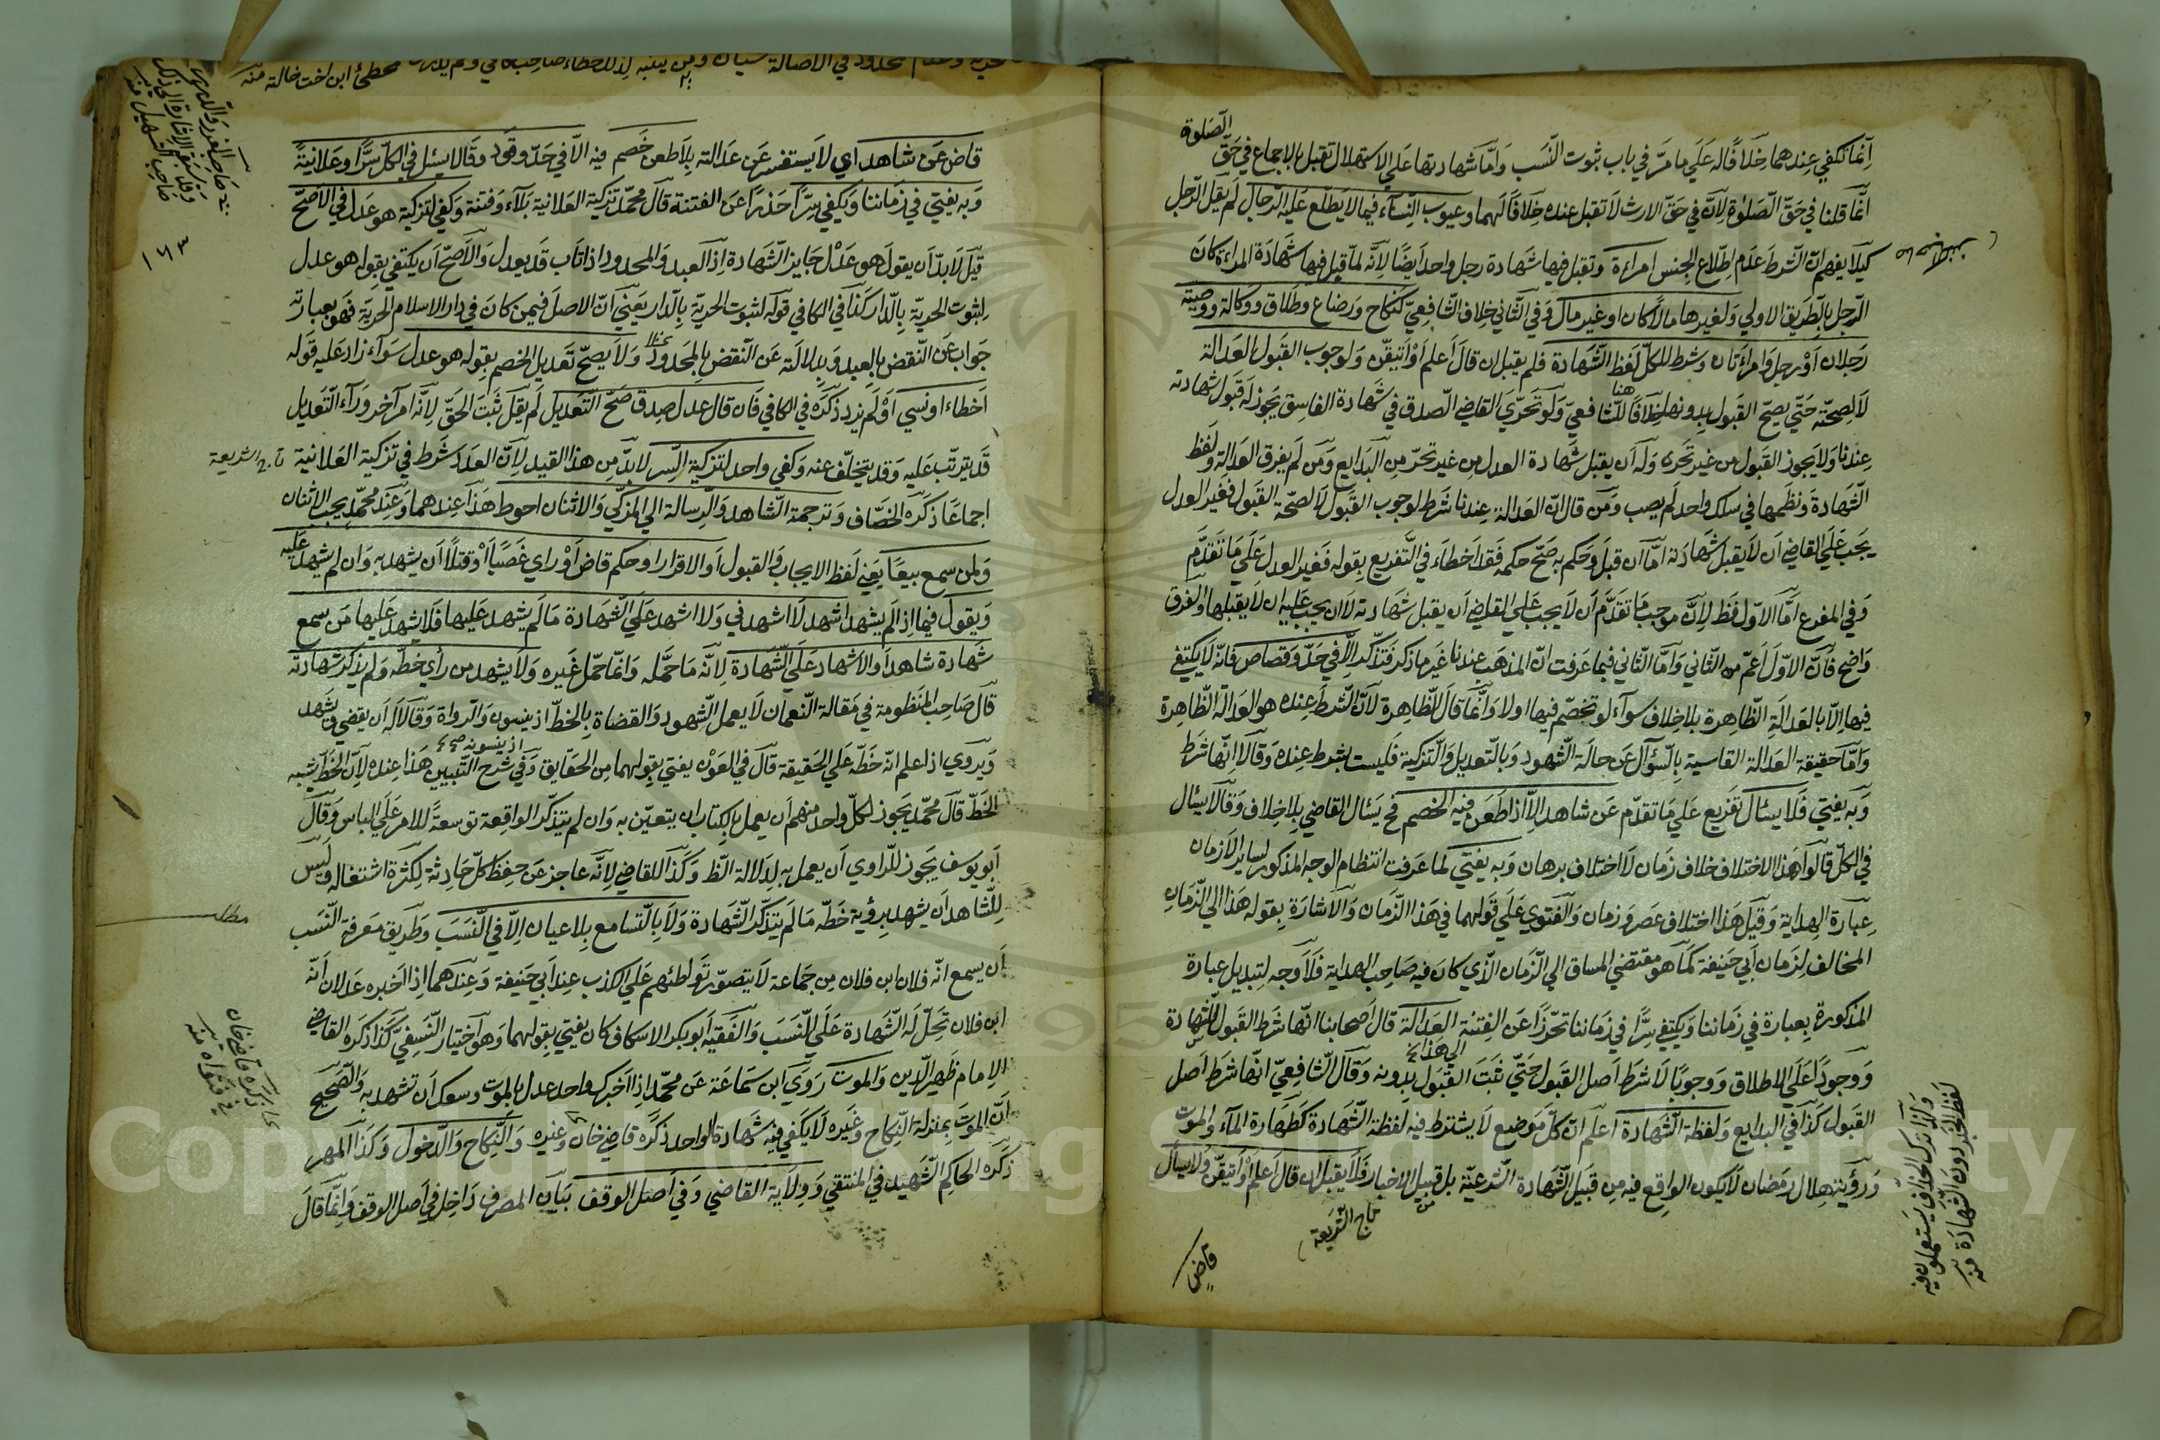 الصلوة
انما تكفي عندهما خلافا له علي ما مر في باب ثبوت النسب واما شهادتها علي الاستهلال تقبل بالاجماع في حق
انما قلنا في حق الصلوة لانه في حق الارث لا تقبل عنده خلافا لهما وعيوب النسآء فيما لا يطلع عليه الرجال لم يقل الرجل
كيلا يفهم ان الشرط عدم اطلاع الجنس امراءة وتقبل فيها شهادة رجل واحد ايضا لانه لما قبل فيها شهادة المراءة كان
الرجل بالطريق الاولي ولغيرها مالا كان او غير مال وفي الثاني خلاف الشافعي كنكاح ورضاع وطلاق ووكالة ووصية
رجلان او رجل وامراءتان وشرط للكل لفظ الشهادة فلم يقبل ان قال اعلم او اتيقن ولوجوب القبول العدالة
لا لصحته حتي يصح القبول بدونها هنا خلافا للشافعي ولو تحري القاضي الصدق في شهادة الفاسق يجوز له قبول شهادته
عندنا ولا يجوز القبول من غير تحري وله ان يقبل شهادة العدل من غير تحر من البدايع ومن لم يفرق العدالة ولفظ
الشهادة ونظمها في سلك واحد لم يصب ومن قال ان العدالة عندنا شرط لوجوب القبول لا لصحة القبول فغير العدل
يجب علي القاضي ان لا يقبل شهادته اما ان قبل وحكم به صح حكمه فقد اخطاء في التفريع بقوله فغير العدل علي ما تقدم
وفي المفرع اما الاول فظ لان موجب ما تقدم ان لا يجب علي القاضي ان يقبل شهادته لا ان يجب عليه ان لا يقبلها والفرق
واضح فان الاول اعم من الثاني واما الثاني فبما عرفت ان المذهب عندنا غير ما ذكر فتذكر الا في حد وقصاص فانه لا يكتفي
فيها الا بالعدالة الظاهرة بلا خلاف سوآء لو تخصم فيها اولا وانما قال الظاهرة لان الشرط عنده هو العدالة الظاهرة
واما حقيقة العدالة القاسية بالسؤال عن حالة الشهود وبالتعديل والتزكية فليست بشرط عنده وقالا انها شرط
وبه يفتي فلا يسئال تفريع علي ما تقدم عن شاهد الا اذا طعن فيه الخصم فح يسئال القاضي بلا خلاف وقالا يسئال
في الكل قالوا هذا الاختلاف خلاف زمان لا اختلاف برهان وبه يفتي لما عرفت انتظام الوجه المذكور لسائر الازمان
عبارة الهداية وقيل هذا اختلاف عصر وزمان والفتوي علي قولهما في هذا الزمان والاشارة بقوله هذا الي الزمان
المخالف لزمان ابي حنيفة كما هو مقتضي المساق الي الزمان الذي كان فيه صاحب الهداية فلا وجه لتبديل عبارة
المذكورة بعبارة في زماننا ويكتفي سرا في زماننا تحرزا عن الفتنة العدالة قال اصحابنا انها شرط القبول للشهادة
ووجودا علي الاطلاق ووجوبا لا شرط اصل القبول حتي ثبت القبول بدونه وقال الشافعي انها شرط اصل
القبول كذا في البدايع ولفظة الشهادة اعلم ان كل موضع لا يشترط فيه لفظة الشهادة كطهارة المآء والموت
ورؤية هلال رمضان لا يكون الواقع فيه من قبيل الشهادة الشرعية بل من قبيل الاخبار فلا يقبل ان قال اعلم او اتيقن ولا يسأل
تاج الشريعة
قاض
لفظ الخبر دون الشهادة منه
محطئ ابن اخت خالة منه
صاحب التسهيل منه
١٦٣
قاض عن شاهد اي لا يستفسر عن عدالته بلا طعن خصم فيه الا في حد وقود وقالا يسئل في الكل سرا وعلانية
وبه يفتي في زماننا ويكفي سرا حذرا عن الفتنة قال محمد تزكية العلانية بلآء وفتنة وكفي لتزكية هو عدل في الاصح
قيل لا بد ان يقول هو عدل جايز الشهادة اذ العبد والمحدود اذا تاب قد يعدل والاصح ان يكتفي بقوله هو عدل
لثبوت الحرية بالدار كذا في الكافي قوله لثبوت الحرية بالدار يعني ان الاصل فيمن كان في دار الاسلام الحرية فهو بعبارته
جواب عن النقض بالعبد وبدلالته عن النقض بالمحدود ولا يصح تعديل الخصم بقوله هو عدل سوآء زاد عليه قوله
اخطاء او نسي او لم يزد ذكره في الكافي فان قال عدل صدق صح التعديل لم يقل ثبت الحق لانه امر آخر ورآء التعديل
قد يترتب عليه وقد يتخلف عنه وكفي واحد لتزكية السر لا بد من هذا القيد لان العدد شرط في تزكية العلانية
تاج الشريعة
اجماعا ذكره الخصاف وترجمة الشاهد والرسالة الي المزكي والاثنان احوط هذا عندهما وعند محمد يجب الاثنان
ولمن سمع بيعا يعني لفظ الايجاب والقبول او الاقرار او حكم قاض او راي غصبا او قتلا ان يشهد به وان لم يشهد عليه
ويقول فيما اذا لم يشهد اشهد لا اشهدني ولا اشهد علي الشهادة ما لم يشهد عليها فلا يشهد عليها من سمع
شهادة شاهد او الاشهاد علي الشهادة لانه ما حمله وانما حمل غيره ولا يشهد من راي خطه ولم يذكر شهادته
قال صاحب المنظومة في مقالة النعمان لا يعمل الشهود والقضاة بالخط اذ ينسون والرواة وقالا له ان يقضي ويشهد
ويروي اذا علم انه خطه علي الحقيقة قال في العون يفتي بقولهما من الحقايق وفي شرح التبيين هذا عنده لان الخط يشبه
الخط قال محمد يجوز لكل واحد منهم ان يعمل بالكتاب ان يتعين به وان لم يتذكر الواقعة توسعة للامر علي الناس وقال
ابو يوسف يجوز للراوي ان يعمل به لدلالة الظ وكذا للقاضي لانه عاجز عن حفظ كل حادثة لكثرة اشتغاله وليس
للشاهد ان يشهد برؤية خطه ما لم يتذكر الشهادة ولا بالتسامع بلا عيان الا في النسب وطريق معرفة النسب
مطلب
ان يسمع انه فلان ابن فلان من جماعة لا يتصور تواطئهم علي الكذب عند ابي حنيفة وعندهما اذا اخبره عدلان انه
ابن فلان تحل له الشهادة علي النسب والفقيه ابو بكر الاسكاف كان يفتي بقولهما وهو اختيار النسفي كذا ذكره القاضي
الامام ظهير الدين والموت روي ابن سماعة عن محمد اذا اخبرك واحد عدل بالموت وسعك ان تشهد به والصحيح
ان الموت بمنزلة النكاح وغيره لا يكفي فيه شهادة الواحد ذكره قاضي خان وغيره والنكاح والدخول وكذا المهر
ذكره الحاكم الشهيد في المنتقي وولاية القاضي وفي اصل الوقف بيان المصرف داخل في اصل الوقف وانما قال